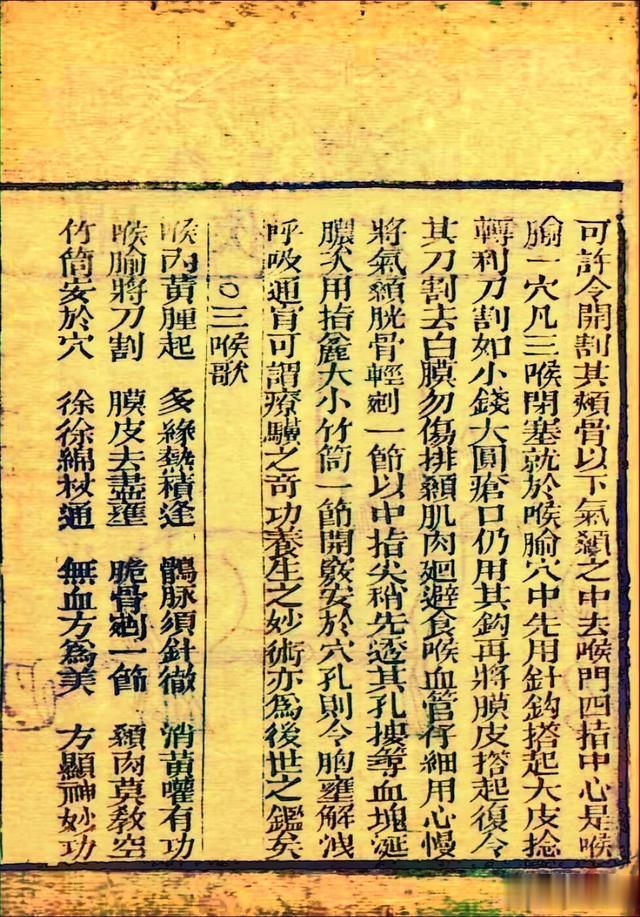 可許令開割其頰骨以下氣顙之中去喉門四指中心是喉
腧一穴凡三喉閉塞就於喉腧穴中先用針鈎搭起大皮捻
轉利刀割如小錢大圓瘡口仍用其鈎再將膜皮搭起復令
其刀割去白膜勿傷排顙肌肉廻避食喉血管仔細用心慢
將氣顙胱骨輕剜一節以中指尖稍先透其孔摟尋血塊涎
膿次用指麄大小竹筒一節開竅安於穴孔則令胸壅解洩
呼吸通宣可謂療驥之竒功養生之妙術亦為後世之鑑矣
○三喉歌
喉內黃腫起 多緣熱積逢 鶻脉須針徹 消黃嚾有功
喉腧將刀割 膜皮去盡壅 脆骨剜一節 顙內莫教空
竹筒安於穴 徐徐綿杖通 無血方為美 方顯神妙功